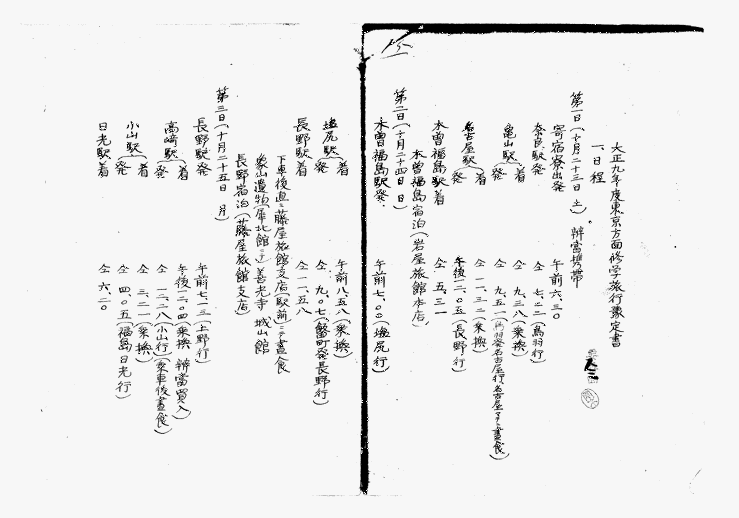 大正九年度東京方面修学旅行豫定書
一、日程
第一日(十月二十三日 土) 辨當携帯
寄宿寮出発 午前六.三〇
奈良駅発 仝 七.二一(鳥羽行)
亀山駅 着 仝 九.三八(乗換)
発 仝 九.五一(鳥羽発名古屋行名古屋マデ晝食)
名古屋駅 着 仝 一一.三二(乗換)
発 午後一二.〇五(長野行)
木曽福島駅着 仝 五.三一
木曽福島宿泊(岩屋旅館本店)
第二日(十月二十四日 日)
木曽福島駅発. 午前七.〇〇(塩尻行)
塩尻駅 着 午前八.五八(乗換)
発 仝 九.〇七(飯田町発長野行)
長野駅着 仝 一一.五八
下車後直ニ藤屋旅館支店(駅前)ニテ晝食
象山遺物(犀北館ニテ)善光寺 城山館
長野宿泊(藤屋旅館支店)
第三日(十月二十五日 月)
長野駅発 午前七.一三(上野行)
高崎駅 着 午後一二.〇四(乗換 辨當買入)
発 仝 一二.二八(小山行)(乗車後晝食)
小山駅 着 仝 三.二一(乗換)
発 仝 四.〇五(福島日光行)
日光駅着 仝 六.二〇